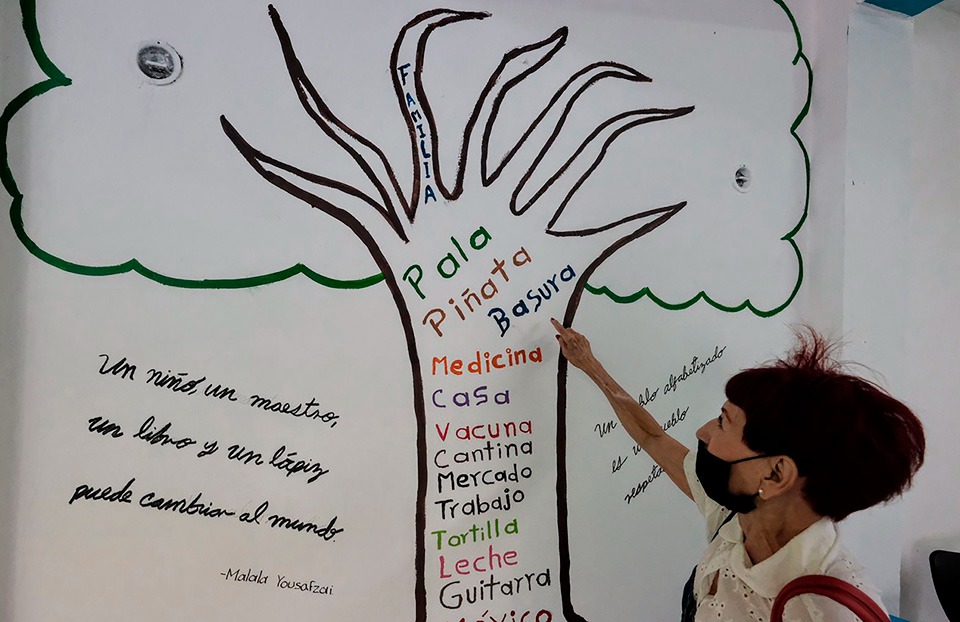 FAMILIA
Pala
Piñata
Basura
Medicina
Casa
Vacuna
Cantina
Mercado
Trabajo
Tortilla
Leche
Guitarra
México
Un niño, un maestro,
un libro y un lápiz
puede cambiar al mundo.
-Malala Yousafzai
Un alfabetizado
es